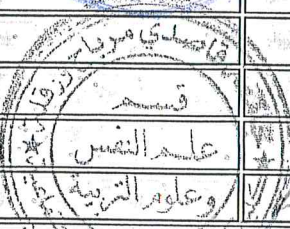 قاصدي مرباح ورقلة
قسم
علم النفس
وعلوم التربية